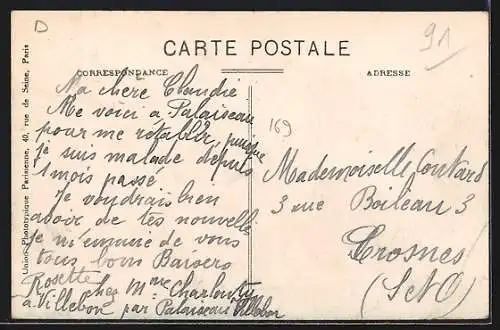 D
91
CARTE POSTALE
CORRESPONDANCE
ADRESSE
169
Ma chère Claudie
Me voici a Palaiseau
pour me rétablir, puisque
je suis malade depuis
1 mois passé
Je voudrais bien
avoir de tes nouvelle
je m'ennuie de vous
tous bons Baisers
Rosette chez Mme Charlo
a Villebon par Palaiseau Villebon
Mademoiselle Coutard
3 rue Boileau 3
Crosnes
(S et O)
Union Phototypique Parisienne, 40, rue de Seine, Paris